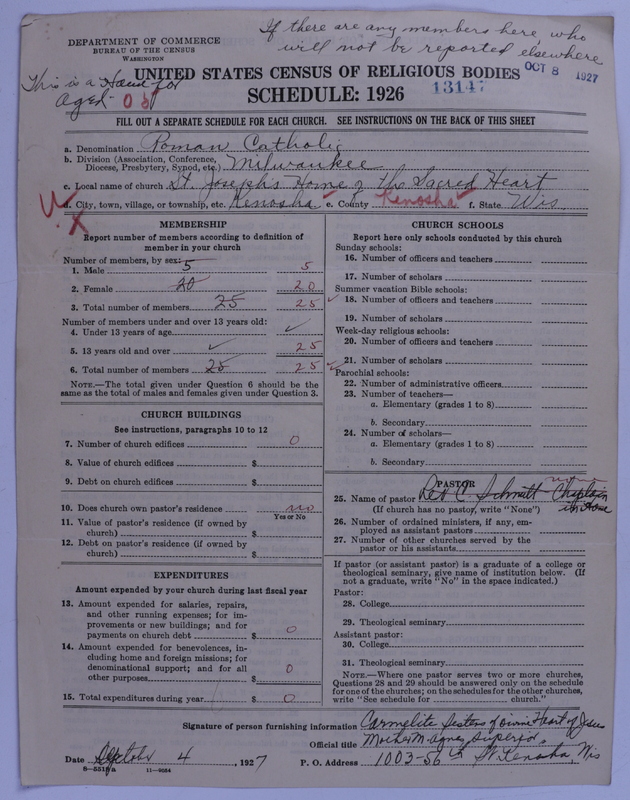 If there are any members here, who
will not be reported elsewhere
DEPARTMENT OF COMMERCE
BUREAU OF THE CENSUS
WASHINGTON
OCT 8 1927
This is a Home for
Aged
UNITED STATES CENSUS OF RELIGIOUS BODIES
SCHEDULE: 1926
13147
FILL OUT A SEPARATE SCHEDULE FOR EACH CHURCH. SEE INSTRUCTIONS ON THE BACK OF THIS SHEET
a. Denomination Roman Catholic
b. Division (Association, Conference,
Diocese, Presbytery, Synod, etc.) Milwaukee
c. Local name of church St. Joseph's Home of the Sacred Heart
d. City, town, village, or township, etc. Kenosha e. County Kenosha f. State Wis
MEMBERSHIP
Report number of members according to definition of
member in your church
Number of members, by sex:
1. Male 5 5
2. Female 20 20
3. Total number of members 25 25
Number of members under and over 13 years old:
4. Under 13 years of age ✓
5. 13 years old and over ✓ 25
6. Total number of members 25 25
NOTE.—The total given under Question 6 should be the
same as the total of males and females given under Question 3.
CHURCH BUILDINGS
See instructions, paragraphs 10 to 12
7. Number of church edifices 0
8. Value of church edifices $
9. Debt on church edifices $
10. Does church own pastor's residence no
Yes or No
11. Value of pastor's residence (if owned by
church) $
12. Debt on pastor's residence (if owned by
church) $
EXPENDITURES
Amount expended by your church during last fiscal year
13. Amount expended for salaries, repairs,
and other running expenses; for im-
provements or new buildings; and for
payments on church debt $ 0
14. Amount expended for benevolences, in-
cluding home and foreign missions; for
denominational support; and for all
other purposes $ 0
15. Total expenditures during year $ 0
CHURCH SCHOOLS
Report here only schools conducted by this church
Sunday schools:
16. Number of officers and teachers
17. Number of scholars
Summer vacation Bible schools:
18. Number of officers and teachers
19. Number of scholars
Week-day religious schools:
20. Number of officers and teachers
21. Number of scholars
Parochial schools:
22. Number of administrative officers
23. Number of teachers—
a. Elementary (grades 1 to 8)
b. Secondary
24. Number of scholars—
a. Elementary (grades 1 to 8)
b. Secondary
PASTOR
25. Name of pastor Rev C. Schmitt Chaplain
(If church has no pastor, write "None")
26. Number of ordained ministers, if any, em-
ployed as assistant pastors
27. Number of other churches served by the
pastor or his assistants
If pastor (or assistant pastor) is a graduate of a college or
theological seminary, give name of institution below. (If
not a graduate, write "No" in the space indicated.)
Pastor:
28. College
29. Theological seminary
Assistant pastor:
30. College
31. Theological seminary
NOTE.—Where one pastor serves two or more churches,
Questions 28 and 29 should be answered only on the schedule
for one of the churches; on the schedules for the other churches,
write "See schedule for church."
Signature of person furnishing information Carmelite Sisters of Divine Heart of Jesus
Official title Mother M. Agnes Superior.
Date October 4, 1927 P. O. Address 1003-56th St. Kenosha, Wis
8-5518a 11-9084